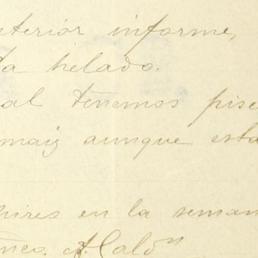 terior informe,
ta helado.
al tenemos pise
maiz aunque esta
hires en la seman
A. Cald^on